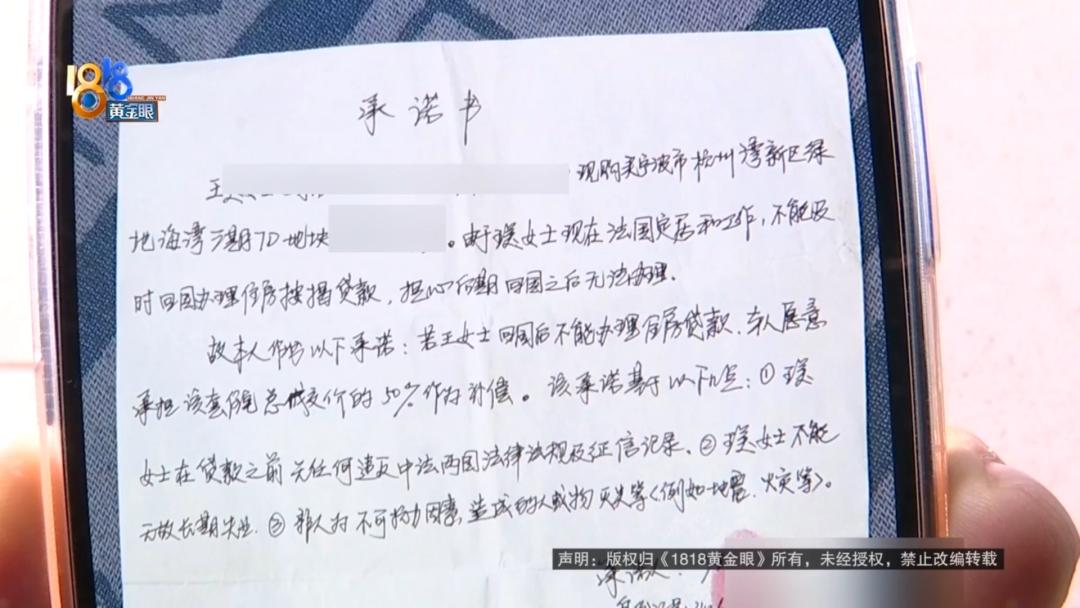 1818
HUANG JIN YAN
黄金眼
承诺书
王 现购买宁波市杭州湾新区绿
地海湾三期7D地块 。由于王女士现在法国定居和工作，不能及
时回国办理住房按揭贷款，担心后期回国之后无法办理。
故本人作出以下承诺：若王女士回国后不能办理住房贷款，本人愿意
承担该套房总成交价的50%作为补偿。该承诺基于以下几点：①王
女士在贷款之前无任何违反中法两国法律法规及征信记录、②王女士不能
无故长期失业、③非人为不可抗力因素，造成的人或物灭失等（例如地震、火灾等）。
声明：版权归《1818黄金眼》所有，未经授权，禁止改编转载
承诺人：